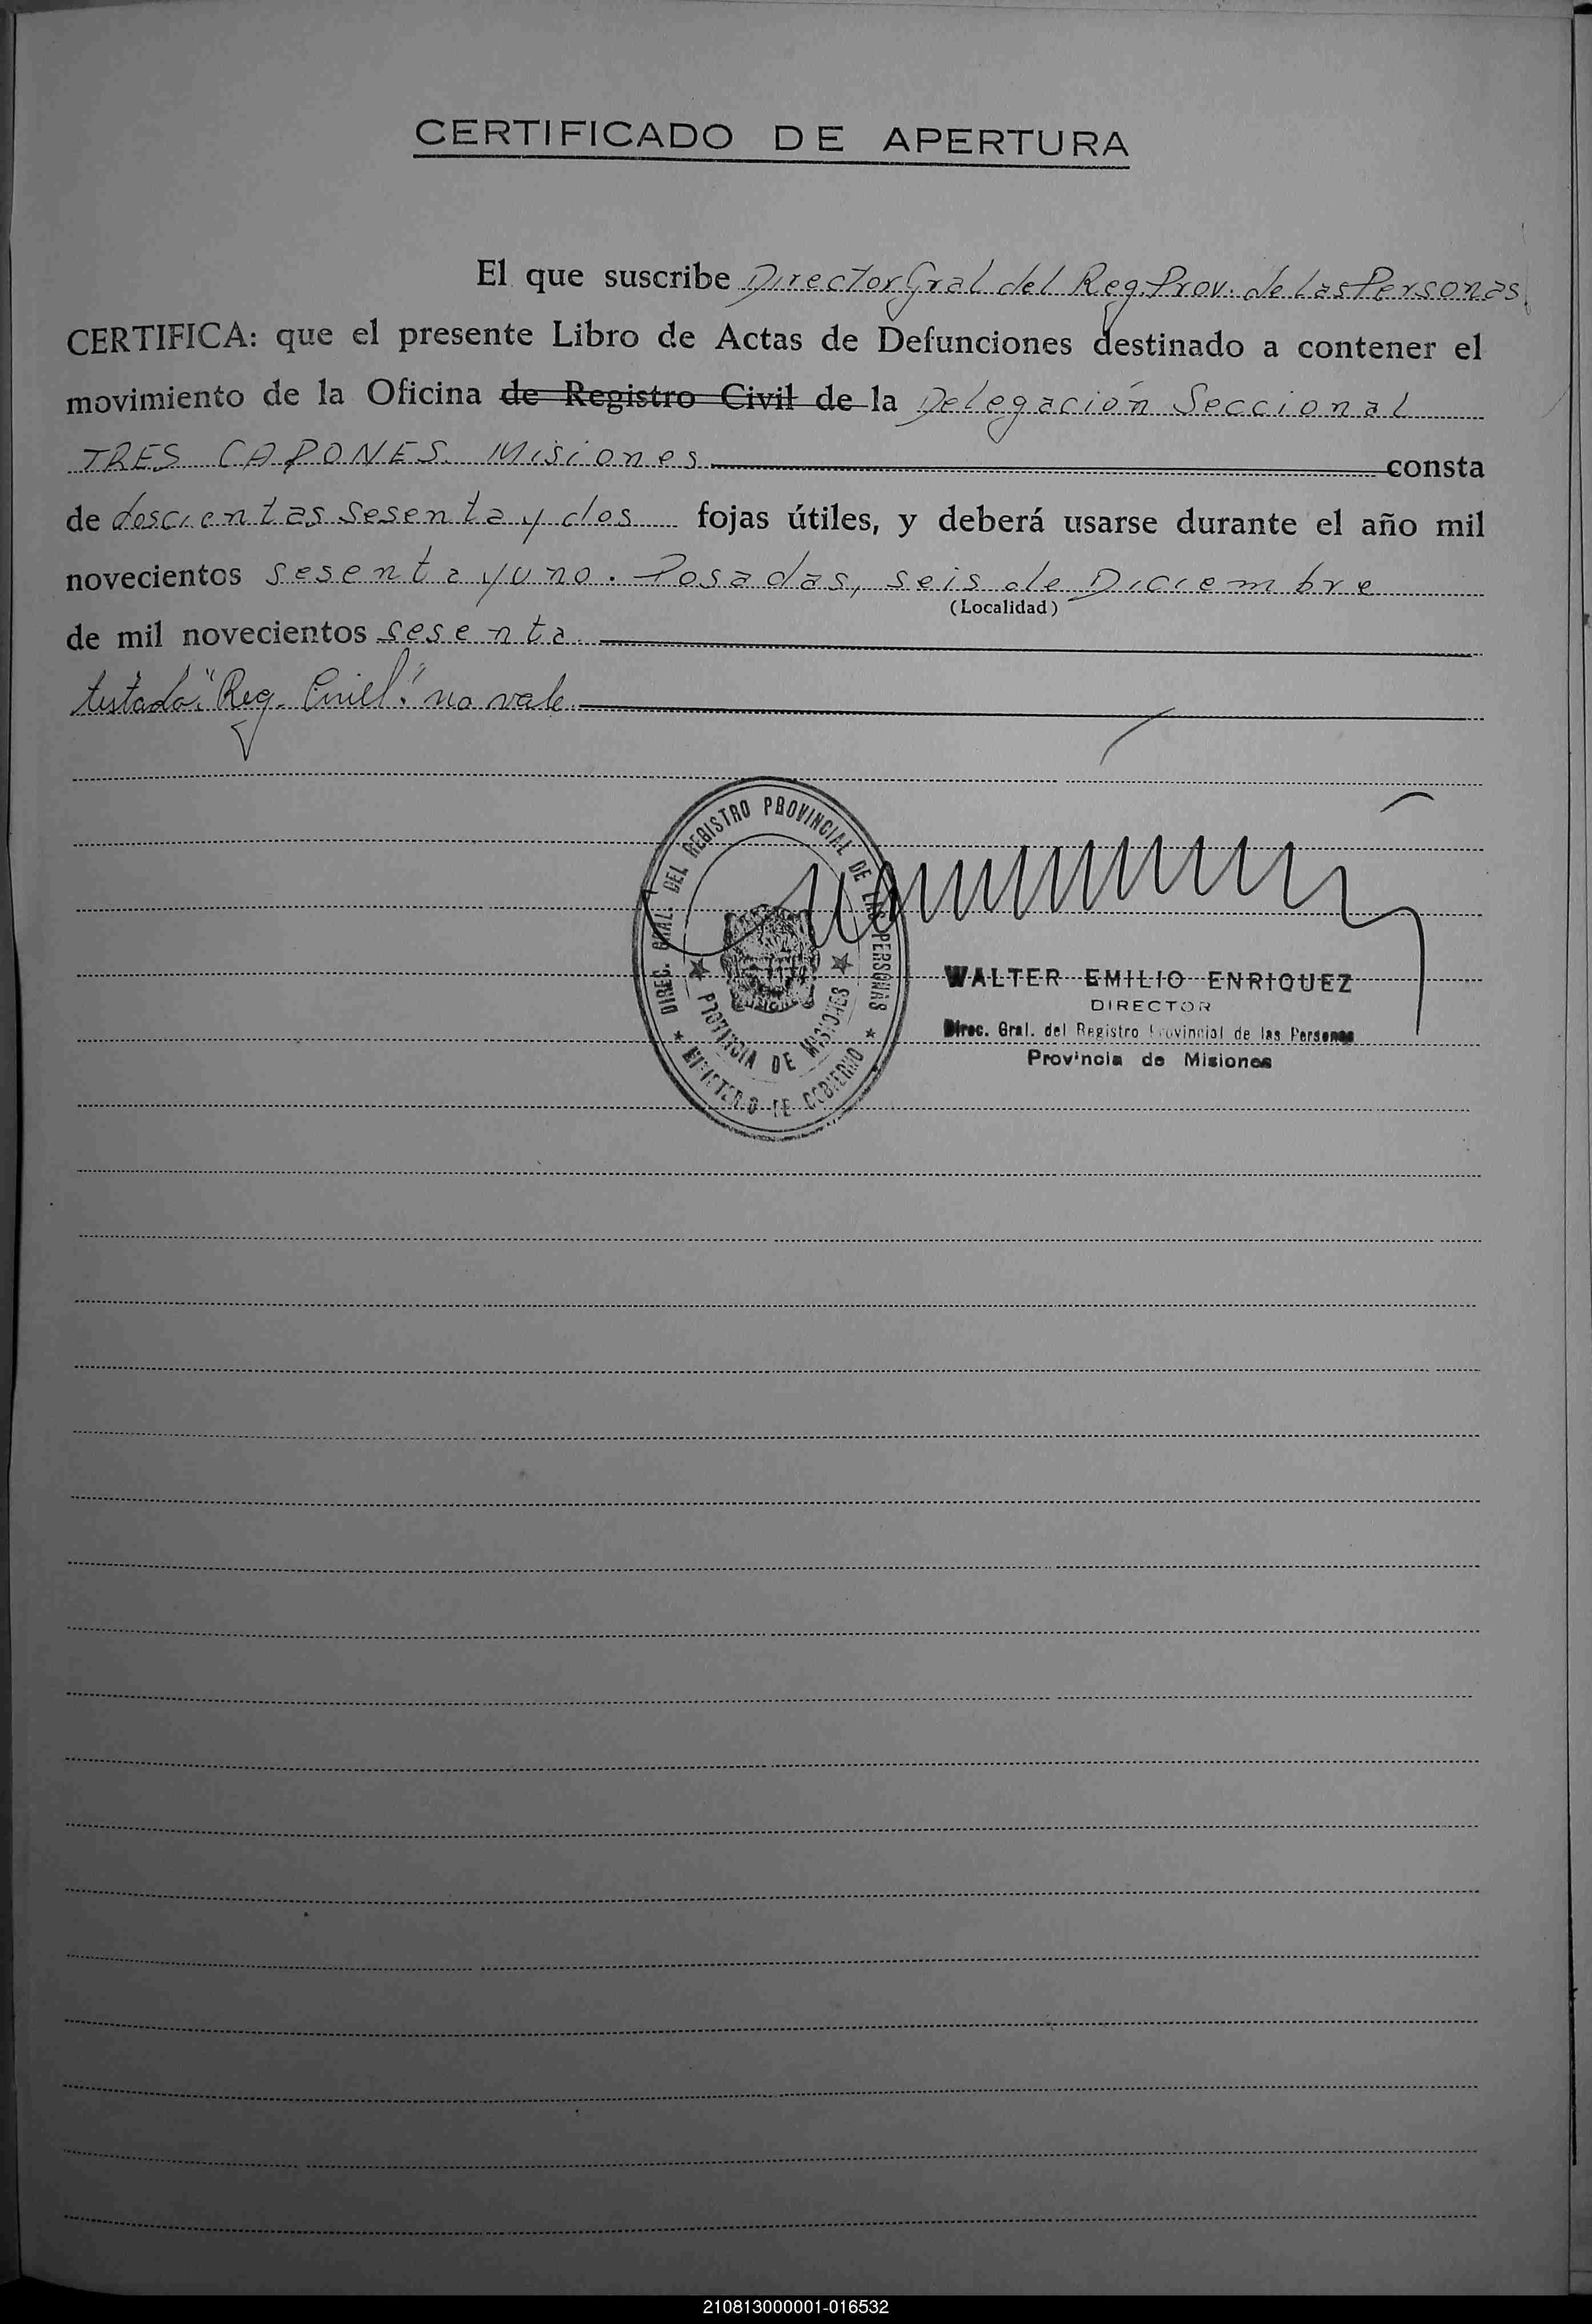 CERTIFICADO DE APERTURA
El que suscribe Director Gral del Reg. Prov. de Las Personas
CERTIFICA: que el presente Libro de Actas de Defunciones destinado a contener el
movimiento de la Oficina de Registro Civil de la Delegación Seccional
TRES CAPONES. Misiones consta
de doscientas sesenta y dos fojas útiles, y deberá usarse durante el año mil
novecientos sesenta y uno. Posadas, seis de Diciembre
(Localidad)
de mil novecientos sesenta.
testado: "Reg. Civil." no vale.
DIREC. GRAL. DEL REGISTRO PROVINCIAL DE LAS PERSONAS
PROVINCIA DE MISIONES
MINISTERIO DE GOBIERNO
WALTER EMILIO ENRIQUEZ
DIRECTOR
Direc. Gral. del Registro Provincial de las Personas
Provincia de Misiones
210813000001-016532